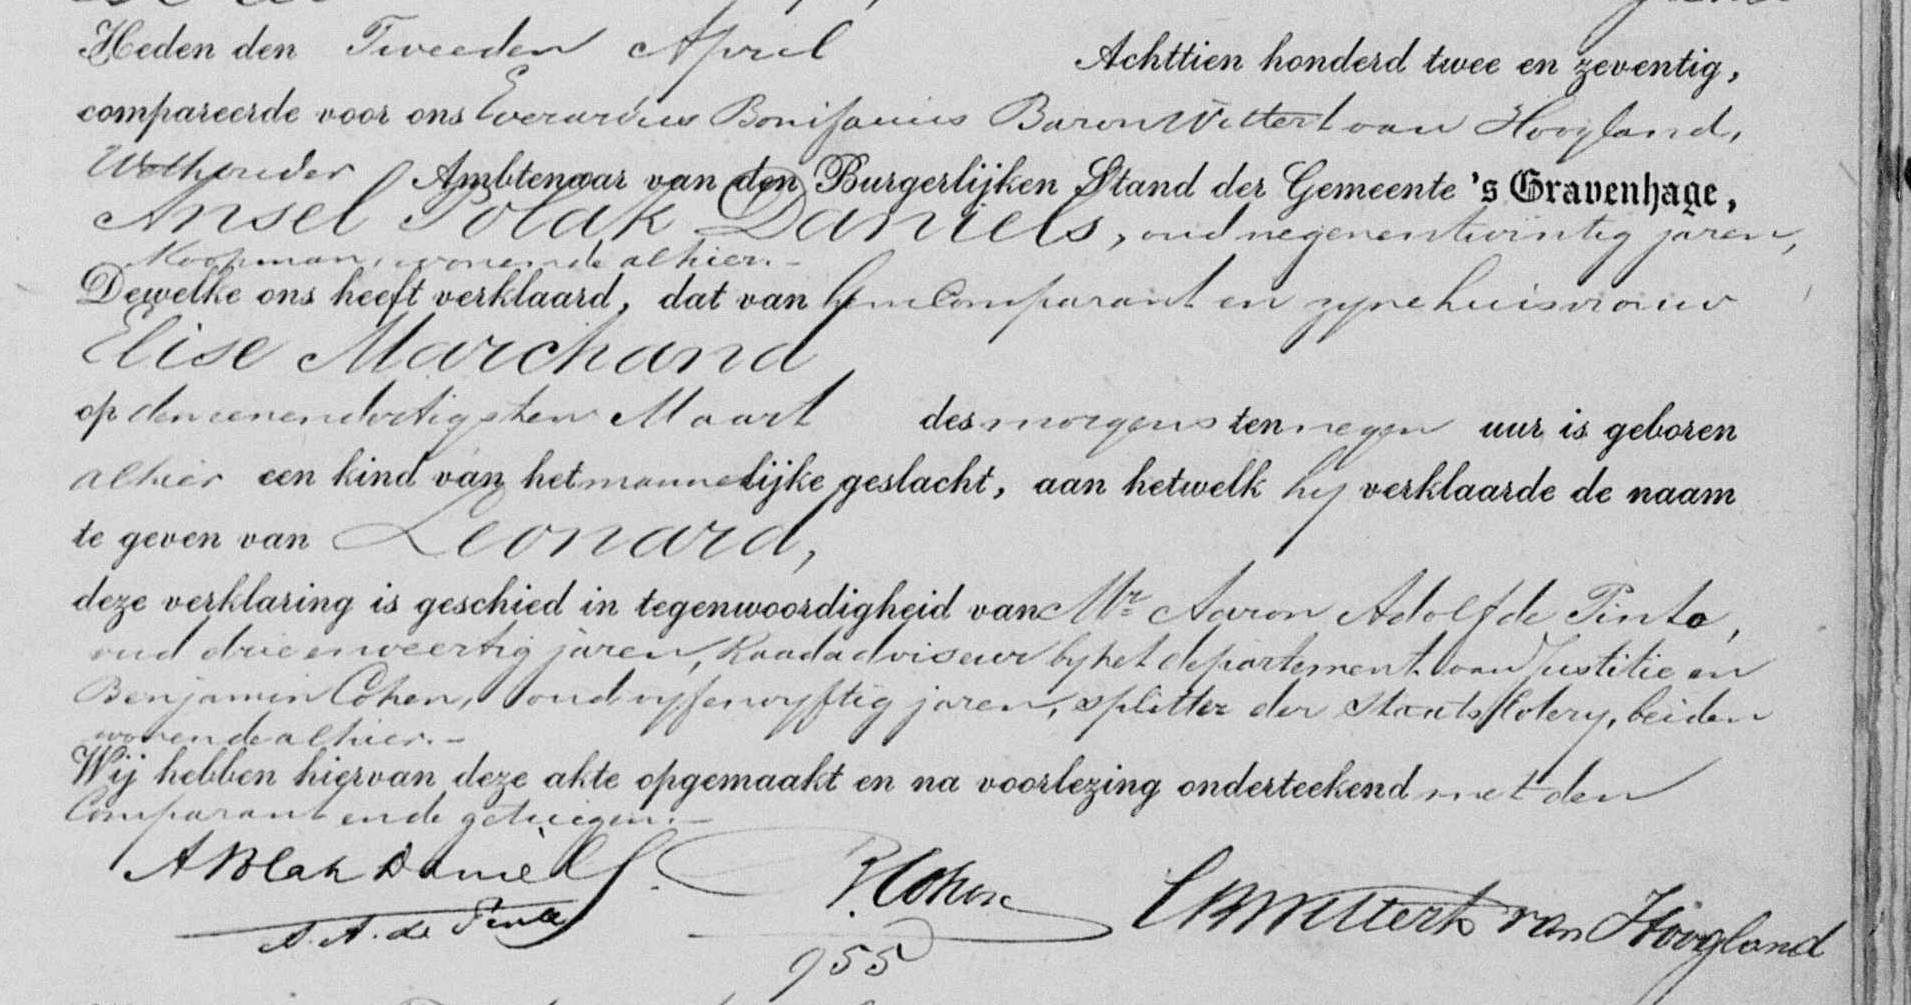 Heden den Tweeden April Achttien honderd twee en zeventig,
compareerde voor ons Everardus Bonifacius Baron Wittert van Hoogland,
Wethouder Ambtenaar van den Burgerlijken Stand der Gemeente 's Gravenhage,
Ansel Polak Daniels, oud negenentwintig jaren,
Koopman, wonende alhier.-
Dewelke ons heeft verklaard, dat van hem Comparant en zijne huisvrouw
Elise Marchand
op den eenendertigsten Maart des morgens ten negen uur is geboren
alhier een kind van het mannelijke geslacht, aan hetwelk hij verklaarde de naam
te geven van Leonard,
deze verklaring is geschied in tegenwoordigheid van Mr. Aaron Adolf de Pinto,
oud drieenveertig jaren, Raadadviseur bij het departement van Justitie en
Benjamin Cohen, oud vijfenvijftig jaren, splitter der Staats lotery, beiden
wonende alhier.-
Wij hebben hiervan deze akte opgemaakt en na voorlezing onderteekend met den
Comparant en de getuigen.-
A Polak Daniels. B. Cohen EB Wittert van Hoogland
A. A. de Pinto
955